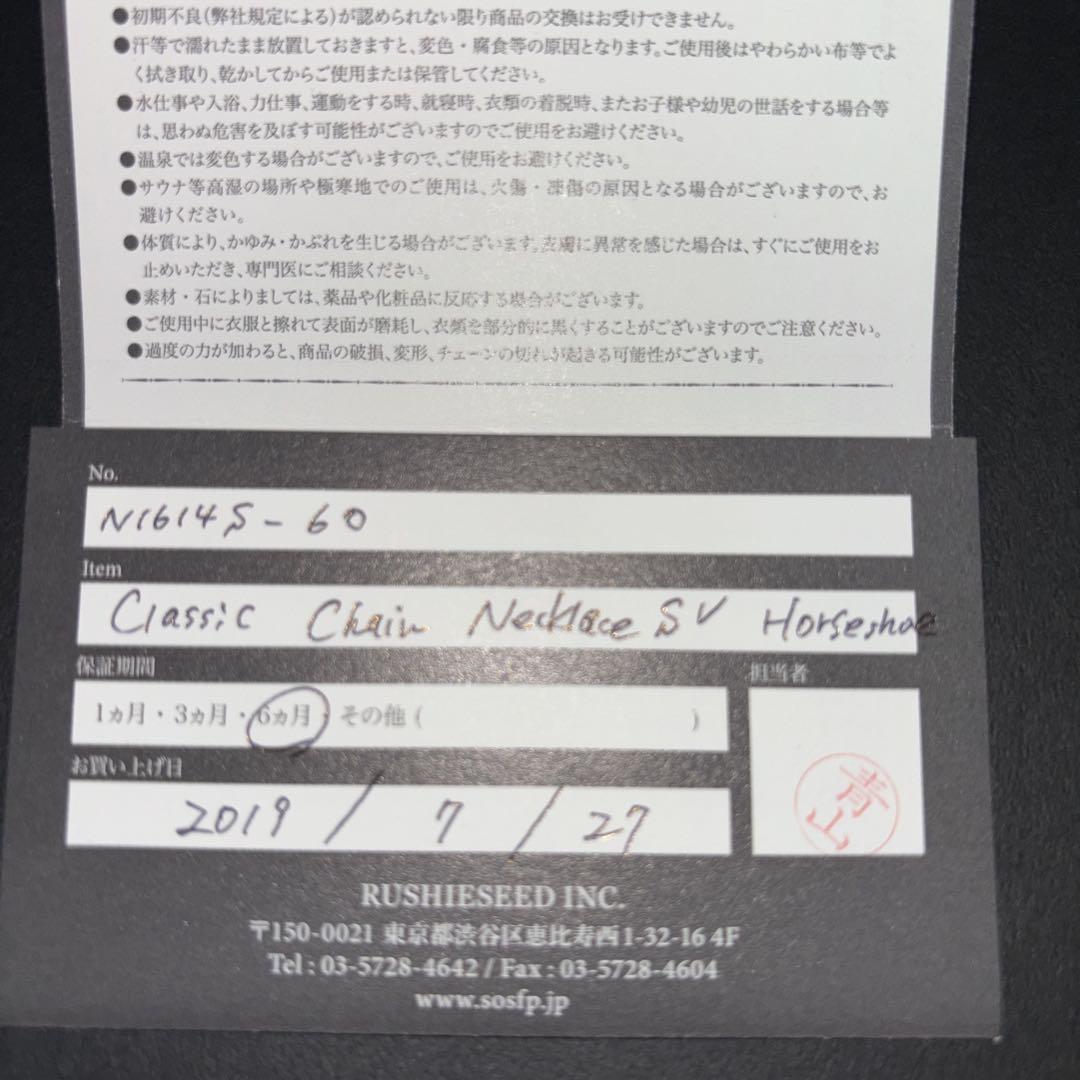 ●初期不良(弊社規定による)が認められない限り商品の交換はお受けできません。
●汗等で濡れたまま放置しておきますと、変色・腐食等の原因となります。ご使用後はやわらかい布等でよ
く拭き取り、乾かしてからご使用または保管してください。
●水仕事や入浴、力仕事、運動をする時、就寝時、衣類の着脱時、またお子様や幼児の世話をする場合等
は、思わぬ危害を及ぼす可能性がございますのでご使用をお避けください。
●温泉では変色する場合がございますので、ご使用をお避けください。
●サウナ等高湿の場所や極寒地でのご使用は、火傷・凍傷の原因となる場合がございますので、お
避けください。
●体質により、かゆみ・かぶれを生じる場合がございます。皮膚に異常を感じた場合は、すぐにご使用をお
止めいただき、専門医にご相談ください。
●素材・石によりましては、薬品や化粧品に反応する場合がございます。
●ご使用中に衣服と擦れて表面が磨耗し、衣類を部分的に黒くすることがございますのでご注意ください。
●過度の力が加わると、商品の破損、変形、チェーンの切れが起きる可能性がございます。
No.
N1614S-60
Item
Classic Chain Necklace SV Horseshoe
保証期間
1ヵ月・3ヵ月・6ヵ月・その他( )
担当者
青山
お買い上げ日
2019/7/27
RUSHIESEED INC.
〒150-0021 東京都渋谷区恵比寿西1-32-16 4F
Tel : 03-5728-4642 / Fax : 03-5728-4604
www.sosfp.jp